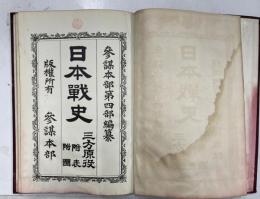 參謀本部第四部編纂
日本戰史
三方原役
附表
附圖
版權所有
參謀本部